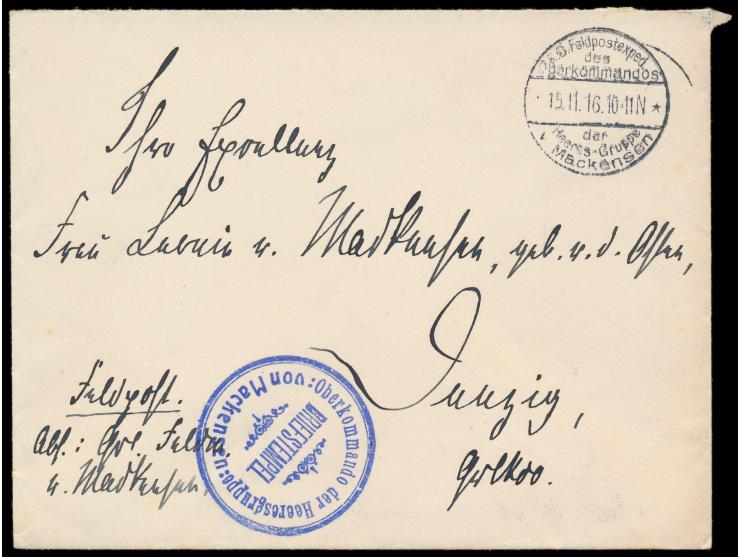 K.D. Feldpostexped.
des
Oberkommandos
15.11.16.10-11N *
der
Heeres-Gruppe
v. Mackensen
Ihre Exzellenz
Frau Leonie v. Mackensen, geb. v. d. Osten,
Danzig,
Feldpost.
Abs.: Gen. Feldm.
v. Mackensen.
Oberkommando der Heeresgruppe:
von Mackensen
BRIEFSTEMPEL